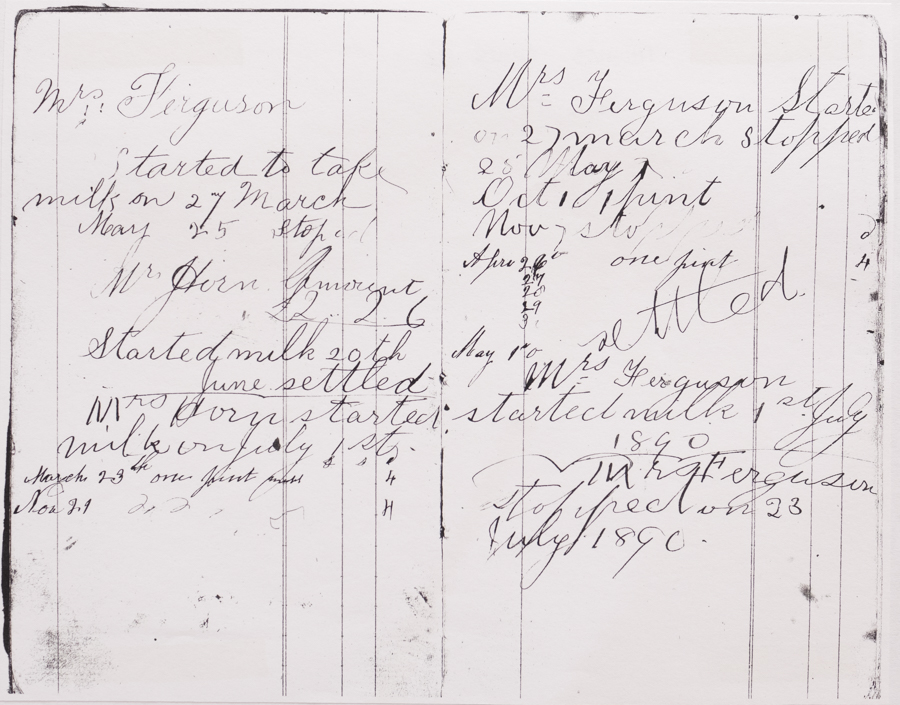 Mrs Ferguson
Started to take
milk on 27 March
May 25 Stoped
Mr Horn Amount
£2 .. 2. 6
Started milk 20th
June settled
Mrs Horn started
milk on july 1st.
March 23th one pint 4
Nov 21 4
Mrs Ferguson Started
on 27 march stopped
25 May
Oct 1 1 pint
Nov 7 stopped 2
Apro 26 one pint 4
27
28
29
settled.
May 1
Mrs Ferguson
started milk 1st July
1890
Mrs Ferguson
stopped on 23
July 1890.